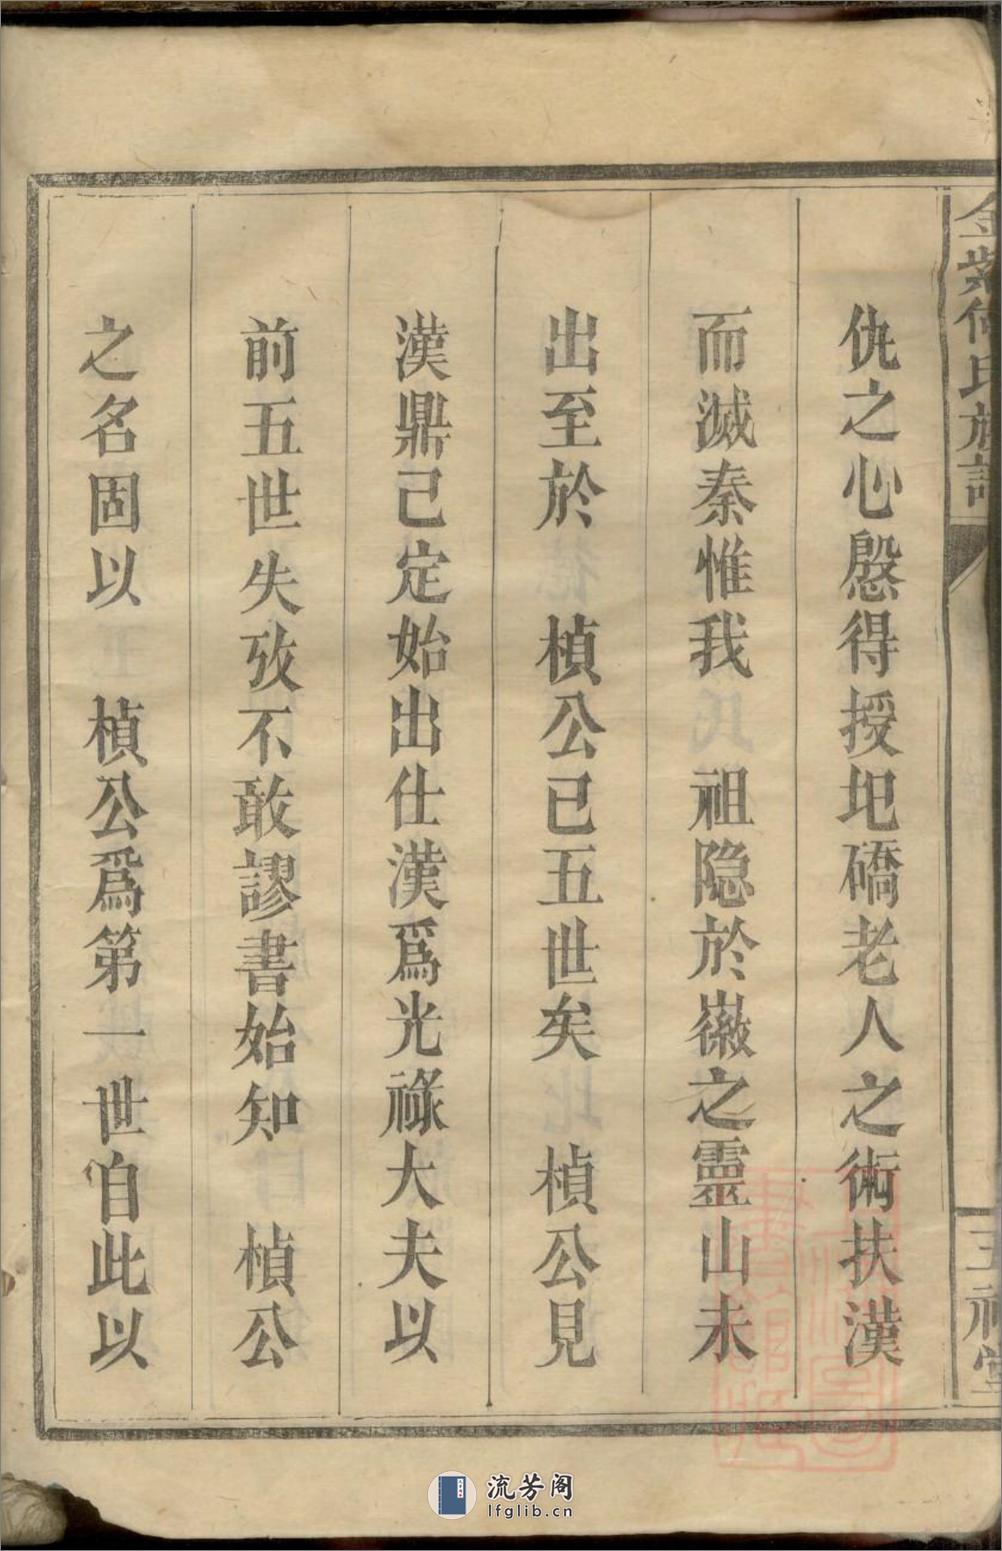 金紫何氏族譜
仇之心慇得授圯礄老人之術扶漢
而滅秦惟我 祖隐於嶶之靈山未
出至於 楨公已五世矣 楨公見
漢鼎己定始出仕漢爲光祿大夫以
前五世失攷不敢謬書始知 楨公
之名固以 楨公爲第一世自此以
流芳阁
lfglib.cn